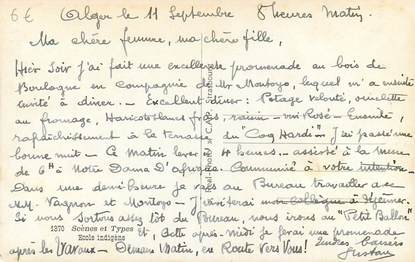 6€ Alger le 11 Septembre 8 heures Matin.
Ma chère femme, ma chère fille,
Hier Soir j'ai fait une excellente promenade au bois de
Boulogne en compagnie de Mr Montoyo, lequel m'a ensuite
invité à diner. — Excellent diner: Potage velouté, omelette
au fromage, Haricots blancs frais, raisin — vin Rosé — Ensuite,
rafraîchissement à la terrasse du "Coq Hardi". J'ai passé une
bonne nuit — Ce Matin lever 4 heures — assisté à la messe
de 6H à Notre Dame D'afrique. Communié à votre intention —
Dans une demi heure je vais au Bureau travailler avec
MM. Vagnon et Montoyo —
Si nous Sortons assez tôt du Bureau, nous irons au "Petit Ballon"
1370 Scènes et Types
Ecole indigène
et, Cette après-midi je ferai une promenade
après les Travaux — Demain Matin, en Route vers Vous!
Tendres baisers
Gustave